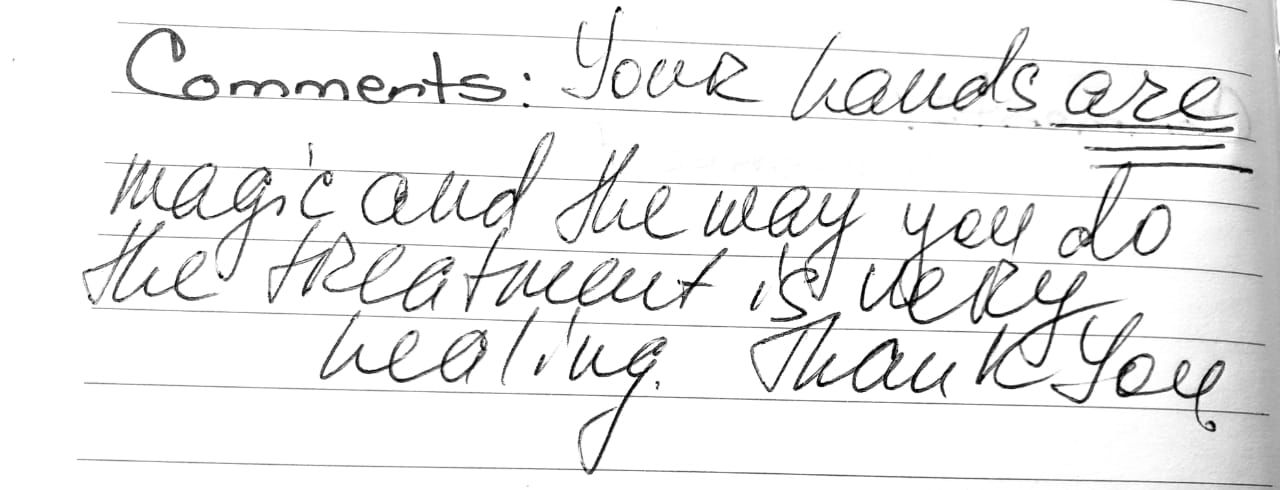 Comments: Your hands are
magic and the way you do
the treatment is very
healing. Thank You.